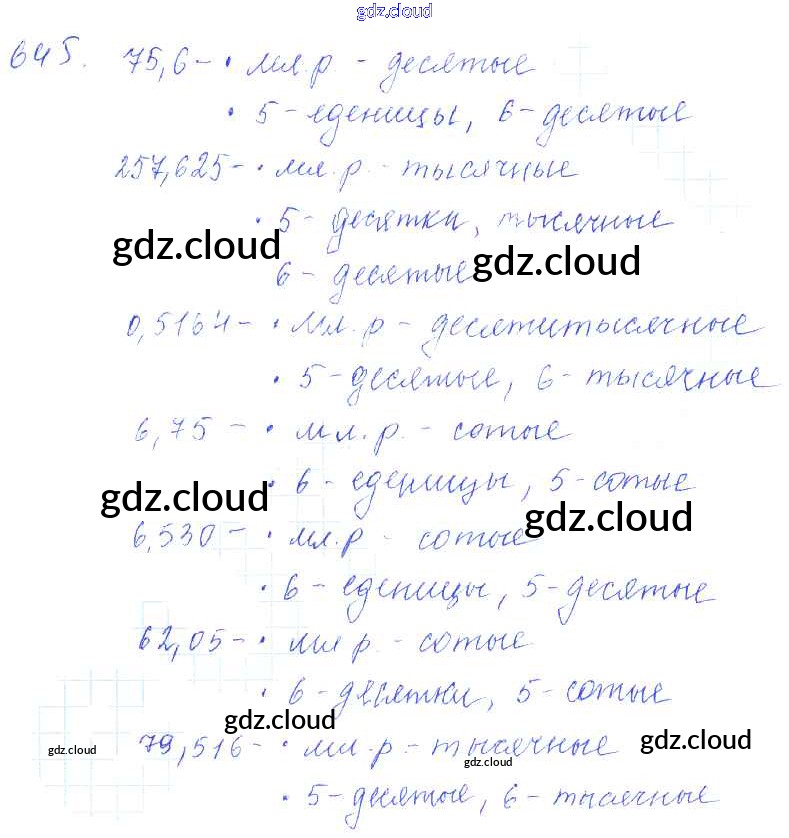 gdz.cloud
645. 75,6 - • мл.р - десятые
• 5 - еденицы, 6 - десятые
257,625 - • мл.р. - тысячные
• 5 - десятки, тысячные
gdz.cloud gdz.cloud
6 - десятые
0,5164 - • мл.р - десятитысячные
• 5 - десятые, 6 - тысячные
6,75 - • мл.р. - сотые
• 6 - еденицы, 5 - сотые
gdz.cloud gdz.cloud
6,530 - • мл.р - сотые
• 6 - еденицы, 5 - десятые
62,05 - • мл р. - сотые
• 6 - десятки, 5 - сотые
gdz.cloud
79,516 - • мл.р. - тысячные
gdz.cloud gdz.cloud gdz.cloud
• 5 - десятые, 6 - тысячные